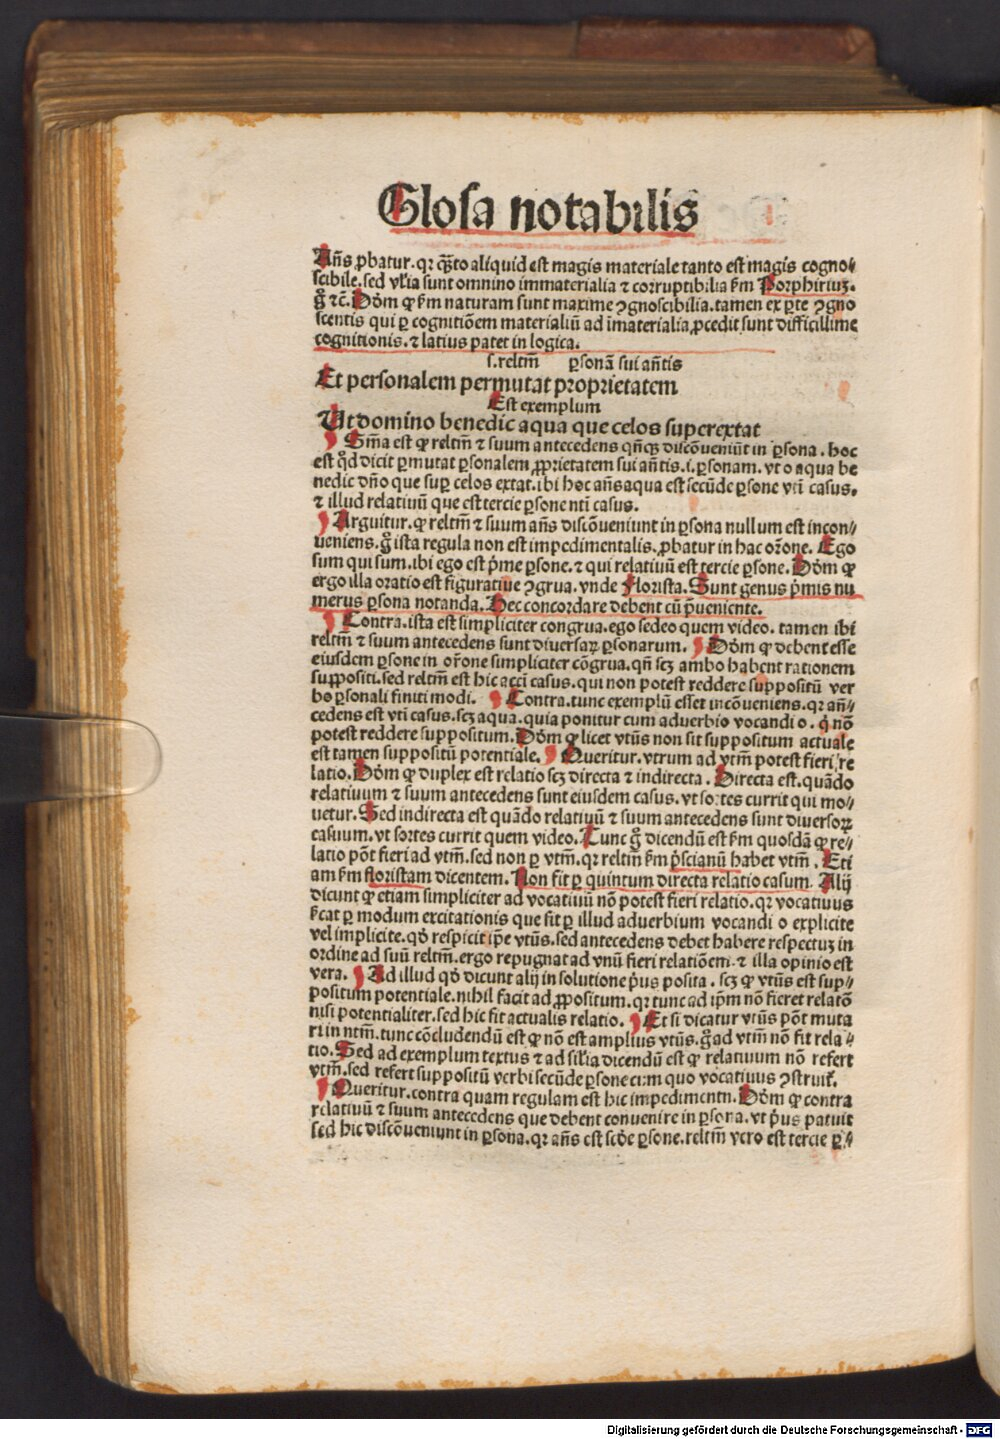 Glosa notabilis
Añs ꝓbatur. qꝛ q̃ꝫto aliquid est magis materiale tanto est magis cogno⸗
scibile. sed vl̃ia sunt omnino immaterialia ⁊ corruptibilia s̃m Porphiriuꝫ.
g̊ ⁊c̃. Dõm ꝙ s̃m naturam sunt maxime ꝯgnoscibilia. tamen ex ꝑte ꝯgno
scentis qui ꝑ cognitiõem materialiũ ad ĩmaterialia ꝓcedit sunt difficillime
cognitionis. ⁊ latius patet in logica.
s. reltm̃ ꝑsonã sui añtis
Et personalem permutat proprietatem
Est exemplum
Ut domino benedic aqua que celos superextat
Sm̃a est ꝙ reltm̃ ⁊ suum antecedens qñqꝫ discõueniũt in ꝑsona. hoc
est qd̃ dicit ꝑmutat ꝑsonalem ꝓprietatem sui añtis. i. ꝑsonam. vt o aqua be
nedic dño que suꝑ celos extat. ibi hoc añs aqua est secũde ꝑsone vti̇̃ casus.
⁊ illud relatiuũ que est tercie ꝑsone nti̇̃ casus.
Arguitur. ꝙ reltm̃ ⁊ suum añs discõueniunt in ꝑsona nullum est incon⸗
ueniens. g̊ ista regula non est impedimentalis. ꝓbatur in hac or̃one. Ego
sum qui sum. ibi ego est p̃me ꝑsone. ⁊ qui relatiuũ est tercie ꝑsone. Dõm ꝙ
ergo illa oratio est figuratiue ꝯgrua. vnde Florista. Sunt genus p̃mis nu
merus ꝑsona notanda. Hec concordare debent cũ p̃ueniente.
Contra. ista est simpliciter congrua. ego sedeo quem video. tamen ibi
reltm̃ ⁊ suum antecedens sunt diuersaꝝ ꝑsonarum. Dõm ꝙ debent esse
eiusdem ꝑsone in or̃one simpliciter cõgrua. qñ scꝫ ambo habent rationem
suppositi. sed reltm̃ est hic acci̇̃ casus. qui non potest reddere suppositũ ver
bo ꝑsonali finiti modi. Contra. tunc exemplũ esset incõueniens. qꝛ añ⸗
cedens est vti̇̃ casus. scꝫ aqua. quia ponitur cum aduerbio vocandi o. q̊ nõ
potest reddere suppositum. Dõm ꝙ licet vtũs non sit suppositum actuale
est tamen suppositũ potentiale. Queritur. vtrum ad vtm̃ potest fieri re
latio. Dõm ꝙ duplex est relatio scꝫ directa ⁊ indirecta. Directa est. quãdo
relatiuum ⁊ suum antecedens sunt eiusdem casus. vt sortes currit qui mo⸗
uetur. Sed indirecta est quãdo relatiuũ ⁊ suum antecedens sunt diuersoꝝ
casuum. vt sortes currit quem video. Tunc g̊ dicendũ est s̃m quosdã ꝙ re⸗
latio põt fieri ad vtm̃. sed non ꝑ vtm̃. qꝛ reltm̃ s̃m p̃scianũ habet vtm̃. Eti
am s̃m floristam dicentem. Non fit ꝑ quintum directa relatio casum. Alij
dicunt ꝙ etiam simpliciter ad vocatiuũ nõ potest fieri relatio. qꝛ vocatiuus
s̃cat ꝑ modum excitationis que fit ꝑ illud aduerbium vocandi o explicite
vel implicite. qď respicit ip̃e vtũs. sed antecedens debet habere respectuꝫ in
ordine ad suũ reltm̃. ergo repugnat ad vnũ fieri relatiõem. ⁊ illa opinio est
vera. Ad illud qď dicunt alij in solutione p̃us posita. scꝫ ꝙ vtũs est sup⸗
positum potentiale. nihil facit ad ꝓpositum. qꝛ tunc ad ip̃m nõ fieret relatõ
nisi potentialiter. sed hic fit actualis relatio. Et si dicatur vtũs põt muta
ri in ntm̃. tunc cõcludendũ est ꝙ nõ est amplius vtũs. g̊ ad vtm̃ nõ fit rela⸗
tio. Sed ad exemplum textus ⁊ ad sil̃ia dicendũ est ꝙ relatiuum nõ refert
vtm̃. sed refert suppositũ verbi secũde ꝑsone cum quo vocatiuus ꝯstruit̃.
Queritur. contra quam regulam est hic impedimentũ. Dõm ꝙ contra
relatiuũ ⁊ suum antecedens que debent conuenire in ꝑsona. vt p̃us patuit
sed hic discõueniunt in ꝑsona. qꝛ añs est scďe ꝑsone. reltm̃ vero est tercie ꝑ⸗
Digitalisierung gefördert durch die Deutsche Forschungsgemeinschaft - DFG